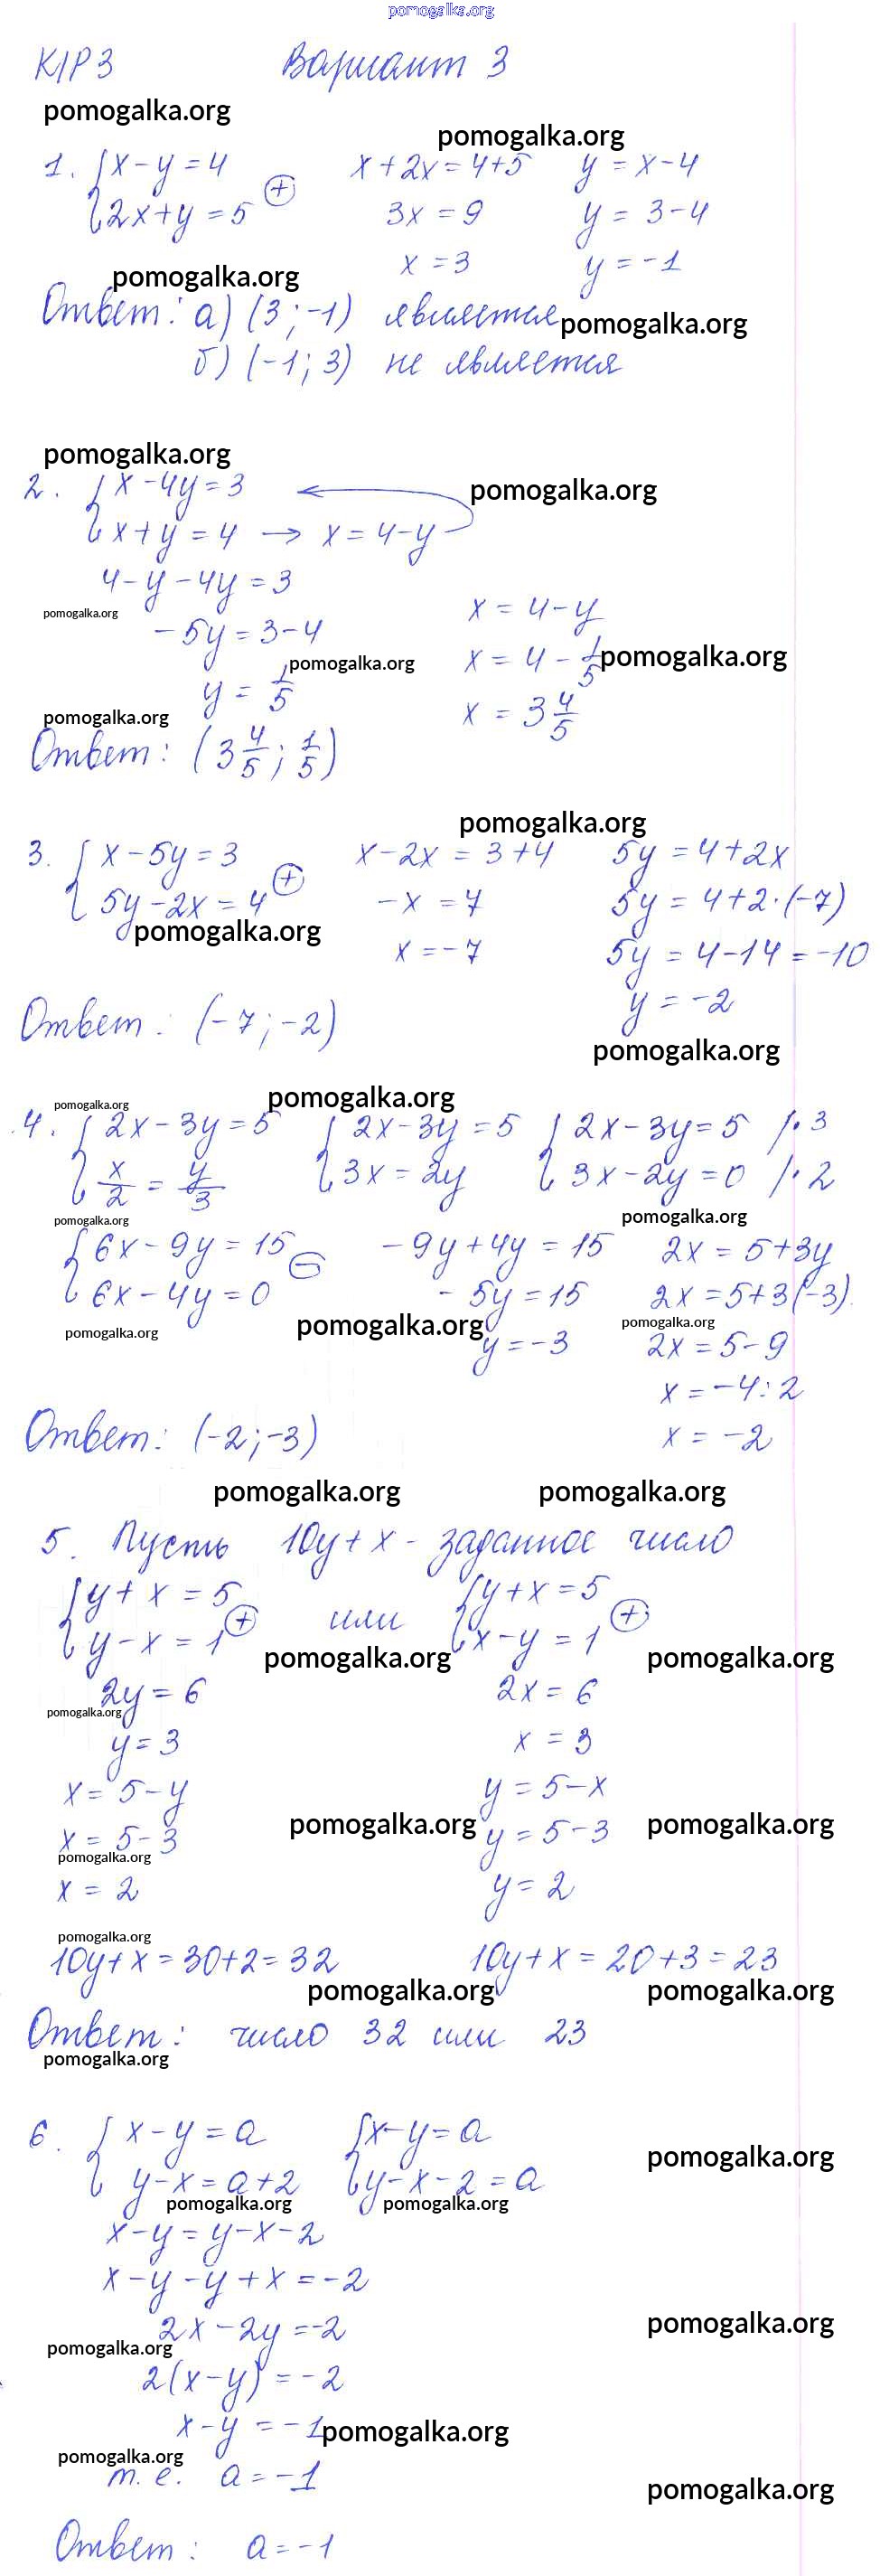 pomogalka.org
К/Р 3 Вариант 3
pomogalka.org
pomogalka.org
1. { x - y = 4 (+) x + 2x = 4 + 5 y = x - 4
2x + y = 5 3x = 9 y = 3 - 4
x = 3 y = -1
pomogalka.org
Ответ: а) (3; -1) является pomogalka.org
б) (-1; 3) не является
pomogalka.org
2. { x - 4y = 3 ← pomogalka.org
x + y = 4 → x = 4 - y
4 - y - 4y = 3
pomogalka.org x = 4 - y
-5y = 3 - 4
y = 1/5 pomogalka.org x = 4 - 1/5 pomogalka.org
pomogalka.org x = 3 4/5
Ответ: (3 4/5; 1/5)
pomogalka.org
3. { x - 5y = 3 (+) x - 2x = 3 + 4 5y = 4 + 2x
5y - 2x = 4 -x = 7 5y = 4 + 2·(-7)
pomogalka.org x = -7 5y = 4 - 14 = -10
Ответ: (-7; -2) y = -2
pomogalka.org
pomogalka.org pomogalka.org
4. { 2x - 3y = 5 { 2x - 3y = 5 { 2x - 3y = 5 /· 3
x/2 = y/3 3x = 2y 3x - 2y = 0 /· 2
pomogalka.org pomogalka.org
{ 6x - 9y = 15 (-) -9y + 4y = 15 2x = 5 + 3y
6x - 4y = 0 -5y = 15 2x = 5 + 3(-3)
pomogalka.org pomogalka.org pomogalka.org
y = -3 2x = 5 - 9
x = -4 : 2
Ответ: (-2; -3) x = -2
pomogalka.org pomogalka.org
5. Пусть 10y + x - заданное число
{ y + x = 5 (+) или { y + x = 5 (+)
y - x = 1 x - y = 1
pomogalka.org pomogalka.org
2y = 6 2x = 6
pomogalka.org
y = 3 x = 3
x = 5 - y y = 5 - x
pomogalka.org pomogalka.org
x = 5 - 3 y = 5 - 3
pomogalka.org
x = 2 y = 2
pomogalka.org
10y + x = 30 + 2 = 32 10y + x = 20 + 3 = 23
pomogalka.org pomogalka.org
Ответ: число 32 или 23
pomogalka.org
6. { x - y = a { x - y = a
pomogalka.org
y - x = a + 2 y - x - 2 = a
pomogalka.org pomogalka.org
x - y = y - x - 2
x - y - y + x = -2
2x - 2y = -2 pomogalka.org
pomogalka.org
2(x - y) = -2
x - y = -1 pomogalka.org
pomogalka.org
т. е. a = -1 pomogalka.org
Ответ: a = -1